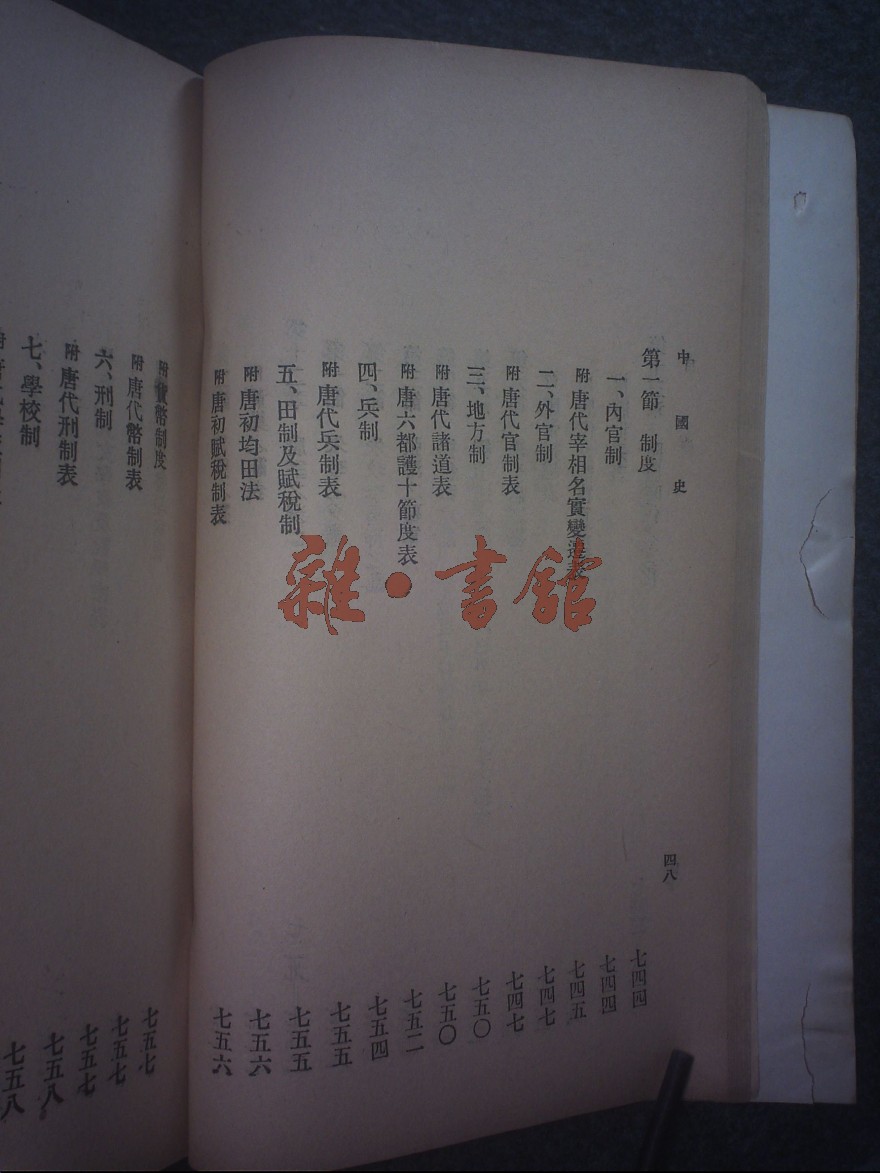 中國史
四八
第一節 制度 七四四
一、內官制 七四四
附 唐代宰相名實變遷表 七四五
二、外官制 七四七
附 唐代官制表 七四七
三、地方制 七五〇
附 唐代諸道表 七五〇
附 唐六都護十節度表 七五二
四、兵制 七五四
附 唐代兵制表 七五五
五、田制及賦稅制 七五五
附 唐初均田法 七五六
附 唐初賦稅制表 七五六
附 貨幣制度 七五七
附 唐代幣制表 七五七
六、刑制 七五七
附 唐代刑制表 七五八
七、學校制 七五八
雜·書館